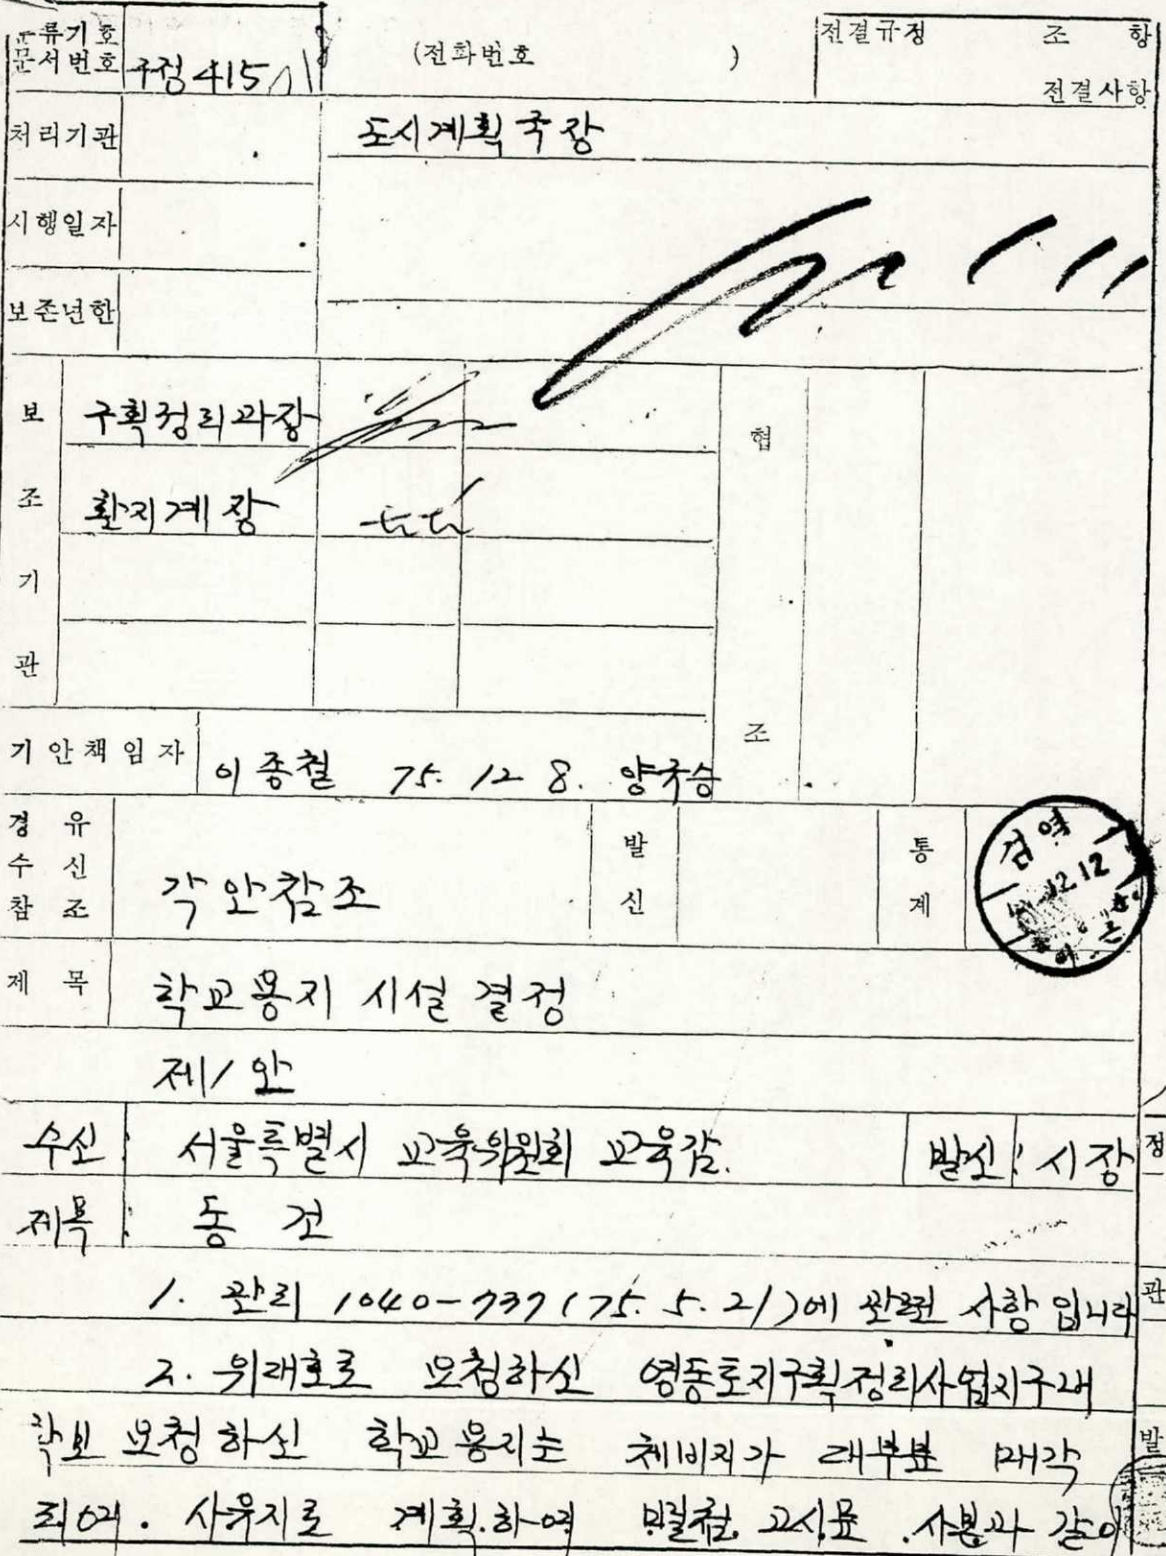 분류기호
문서번호 구정 415
(전화번호 )
전결규정 조 항
전결사항
처리기관
도시계획국장
시행일자
보존년한
보조기관
구획정리과장
환지계장
협조
기안책임자 이종철 75. 12 8. 양국승
경유
수신
참조
각안참조
발신
통제
검열
12.12
제목 학교용지 시설 결정
제1안
수신: 서울특별시 교육위원회 교육감. 발신: 시장
제목: 동 건
1. 관리 1040-737 (75. 5. 21)에 관련 사항 입니다
2. 위래호로 요청하신 영동토지구획정리사업지구내
확보 요청하신 학교용지는 체비지가 대부분 매각
되어. 사유지로 계획.하여 별첨. 고시문 .사본과 같이
정
관
발